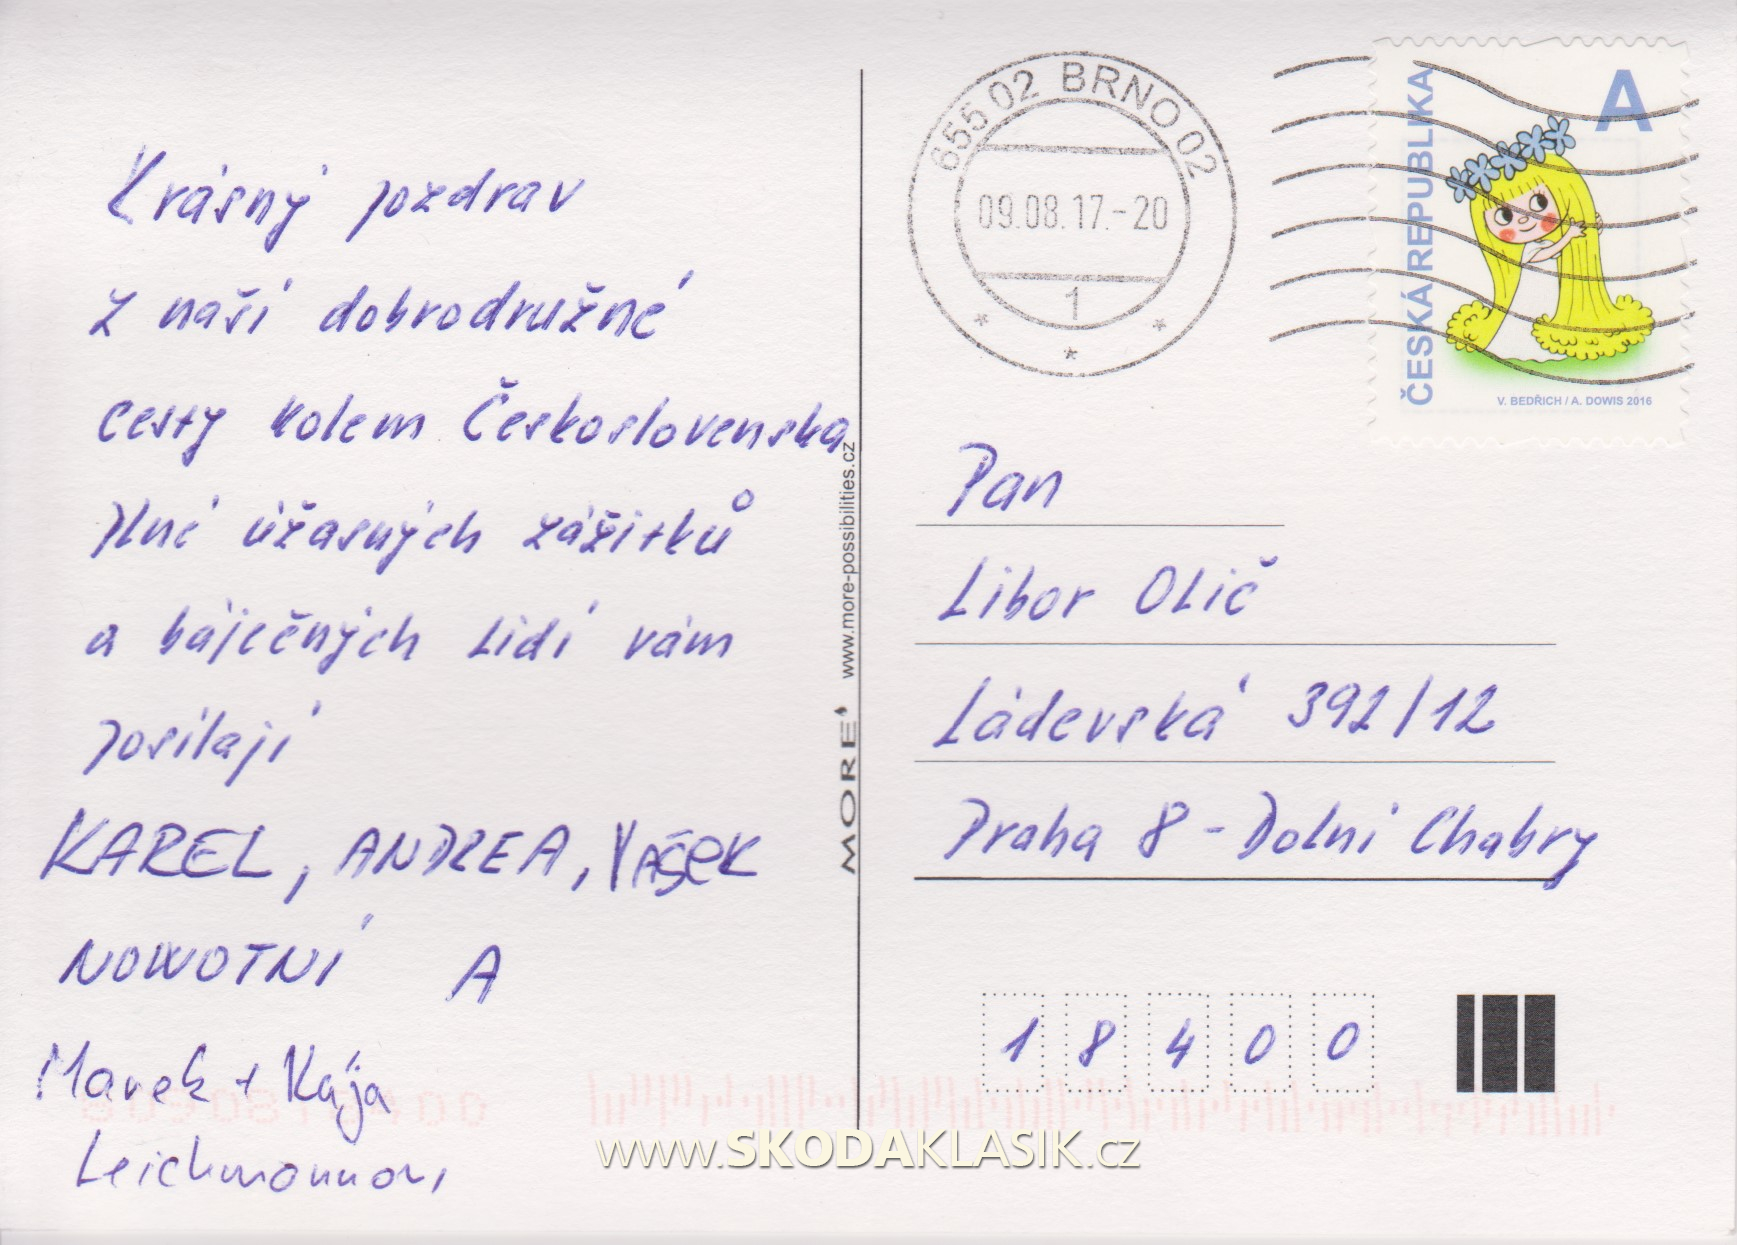 Krásný pozdrav
z naší dobrodružné
cesty kolem Československa
plné úžasných zážitků
a báječných lidí vám
posílají
KAREL, ANDREA, VAŠEK
NOWOTNÍ A
Marek + Kája
Leichmannovi
MORE'
www.more-possibilities.cz
655 02 BRNO 02
09.08.17.-20
1
ČESKÁ REPUBLIKA
A
V. BEDŘICH / A. DOWIS 2016
Pan
Libor Olič
Ládevská 392/12
Praha 8 - Dolní Chabry
18400
www.SKODAKLASIK.cz